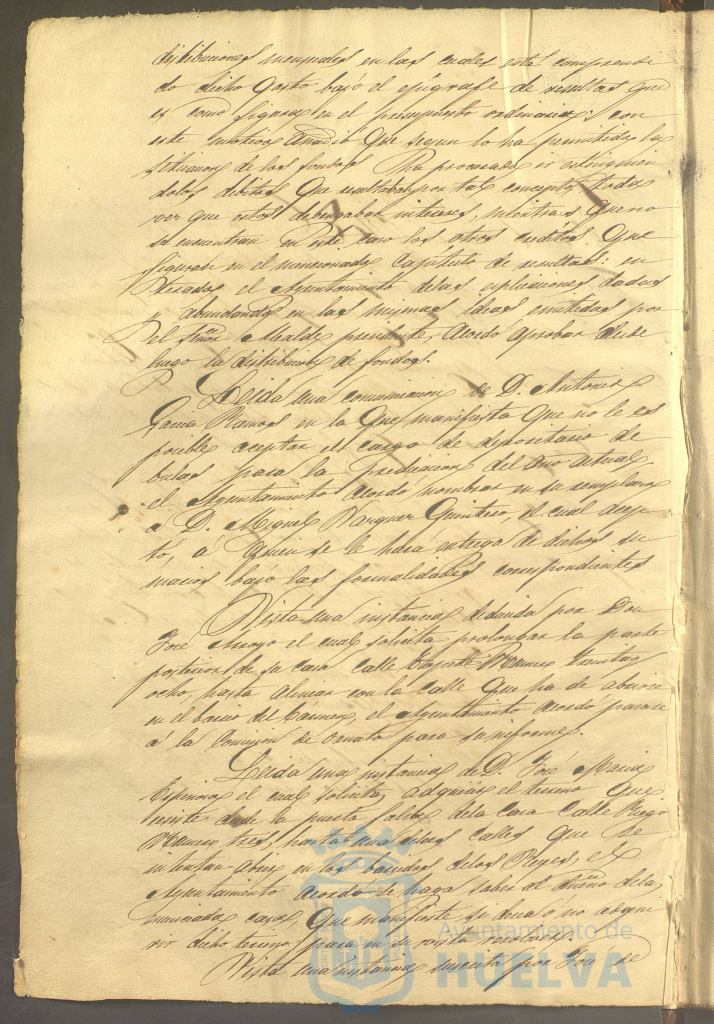 distribuciones mensuales en las cuales está comprendi
do dicho gasto bajo el epígrafe de resultas que
es como figura en el presupuesto ordinario: con
este motivo añadió que segun lo ha permitido la
situacion de los fondos ha procurado ir estinguien
dolos debitos que resultaban por tal concepto toda
vez que estos debengaban intereses, mientras que no
se encuentran en este caso los otros creditos que
figuran en el mencionado Capitulo de resultas: en
terado el Ayuntamiento delas esplicaciones dadas
y abundando en las mismas ideas emitidas por
el Señor Alcalde presidente, acordo aprobar desde
luego la distribucion de fondos.
Leida una comunicacion de D. Antonio
Garcia Ramos en la que manifiesta que no le es
posible aceptar el cargo de depositario de
bulas para la predicacion del año actual
el Ayuntamiento acordo nombrar en su remplazo
á D. Miguel Vazquez Quintero, el cual acep
tó, á quien se le hará entrega de dichos su
marios bajo las formalidades correspondientes
Vista una instancia deducida por Don
José Arroyo el cual solicita prolongar la parte
posterior de su casa calle numero treinta y
ocho, hasta alinear con la calle que ha de abrirse
en el barrio del Carmen, el Ayuntamiento acordo pasase
á la Comision de ornato para su informe.
Leida una instancia de D. José Maria
Espinosa el cual solicita adquirir el terreno que
existe desde la puerta falsa dela casa calle
numero tres, hasta una delas calles que se
intentan abrir en los delos Reyes, el
Ayuntamiento acordo se haga saber al dueño dela
enunciada casa, que manifieste si desea ó no adqui
rir dicho terreno para en su vista resolver.
Vista una instancia suscrita por José de
Ayuntamiento de
HUELVA